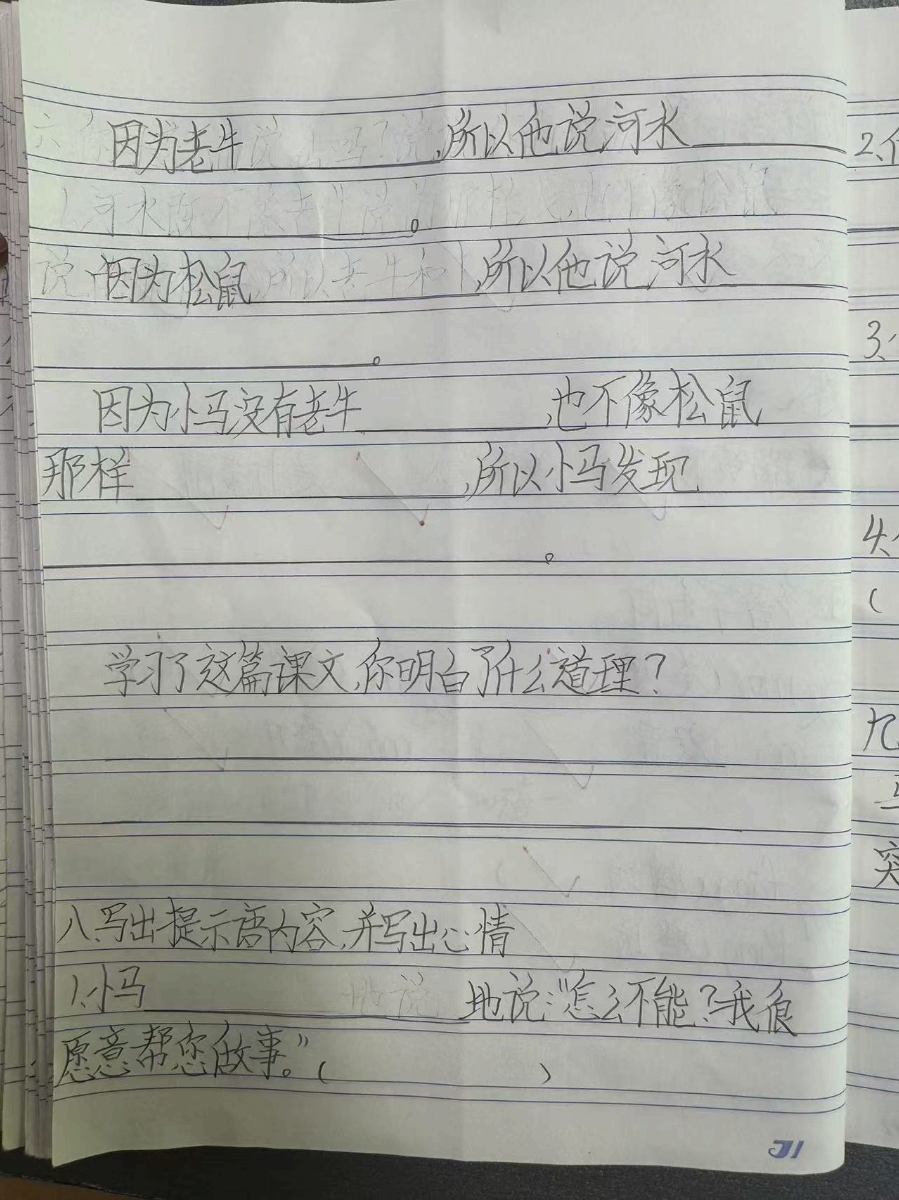 因为老牛____________,所以他说河水__________
____________。
因为松鼠____________,所以他说河水________
____________。
因为小马没有老牛__________,也不像松鼠
那样____________,所以小马发现
__________________。
学习了这篇课文,你明白了什么道理?
八、写出提示语内容,并写出心情
1、小马____________地说:"怎么不能?我很
愿意帮您做事。"(          )
31
2、
3、
4、
(
九
突